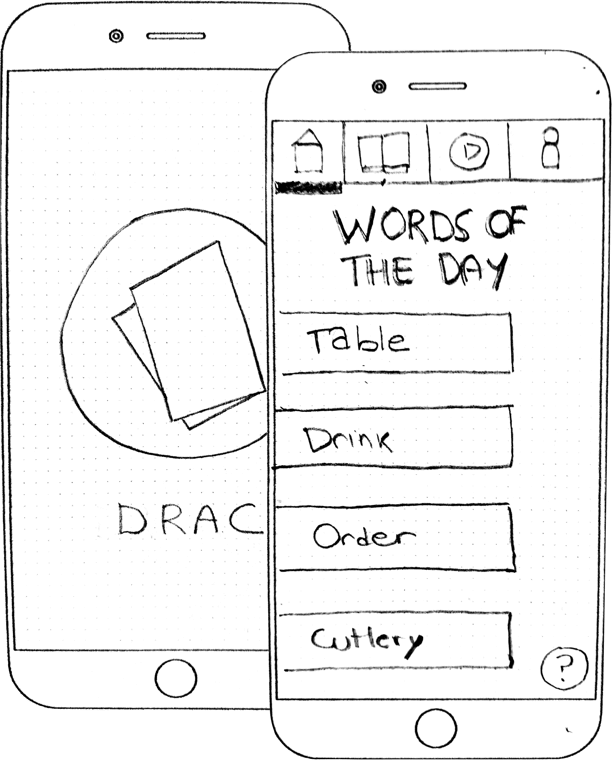 DRAC
WORDS OF
THE DAY
Table
Drink
Order
Cutlery
?